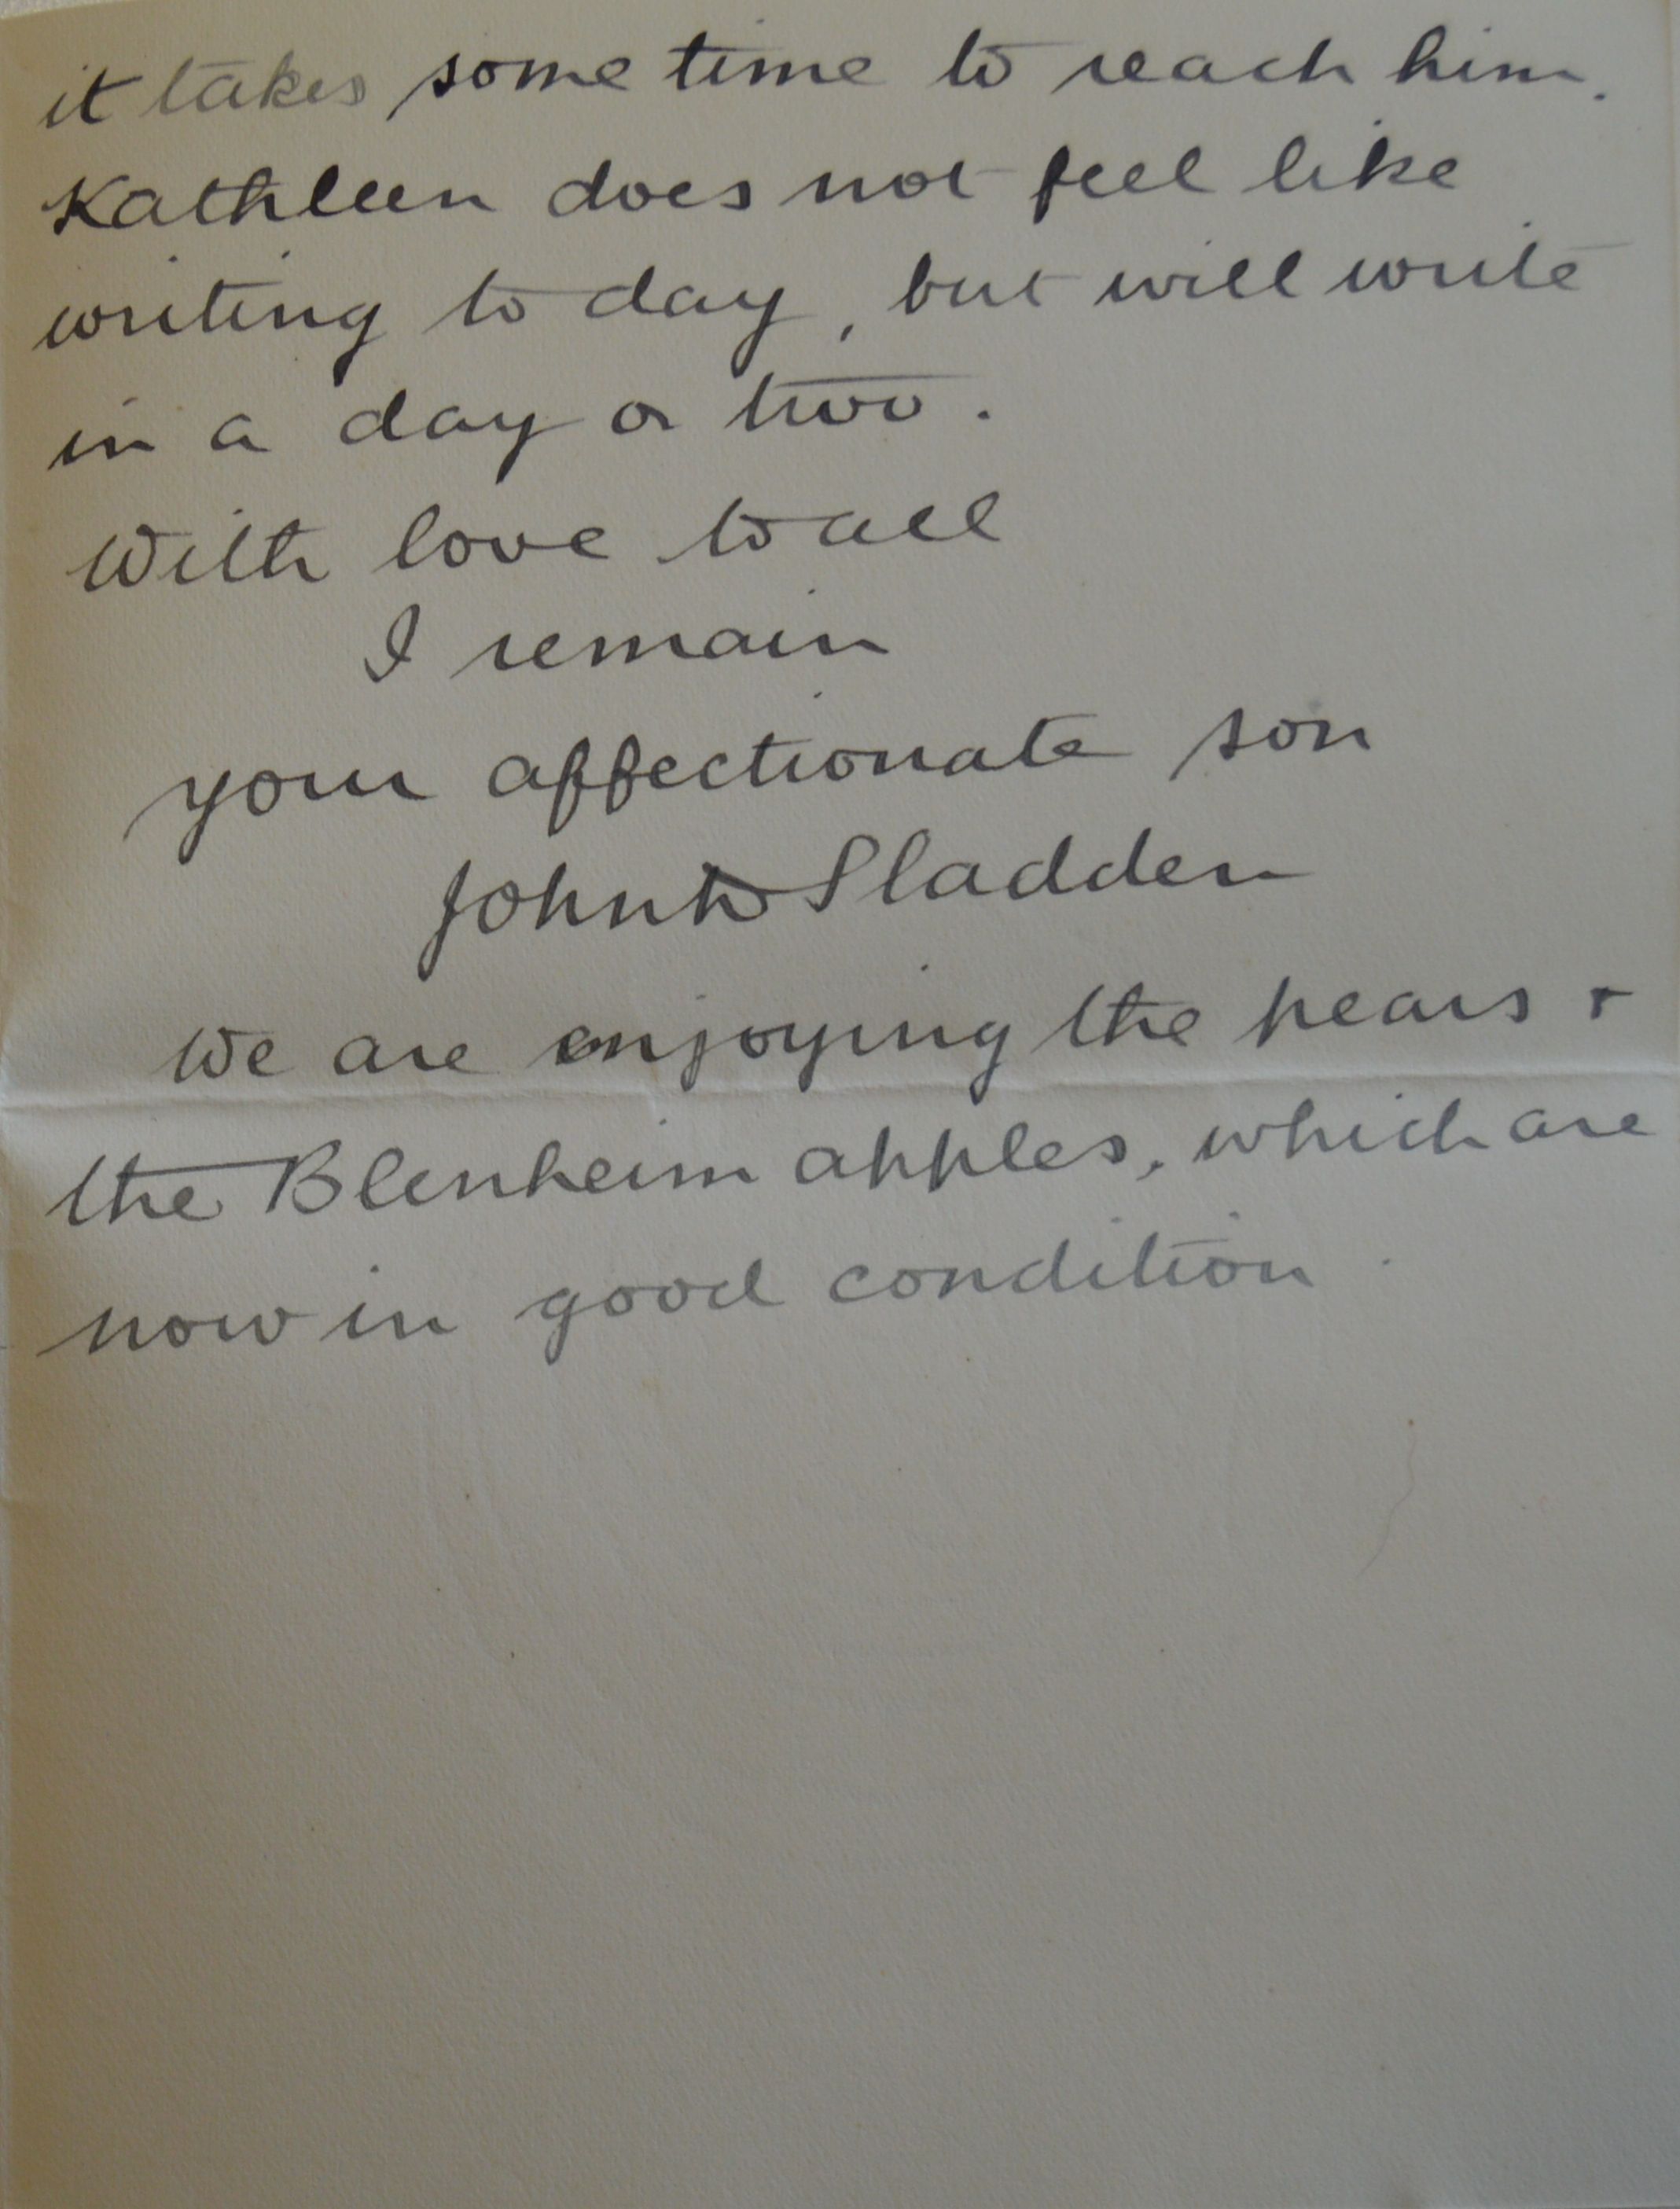 it takes some time to reach him.
Kathleen does not feel like
writing to day, but will write
in a day or two.
With love to all
I remain
your affectionate son
John W Sladden
We are enjoying the pears &
the Blenheim apples, which are
now in good condition.